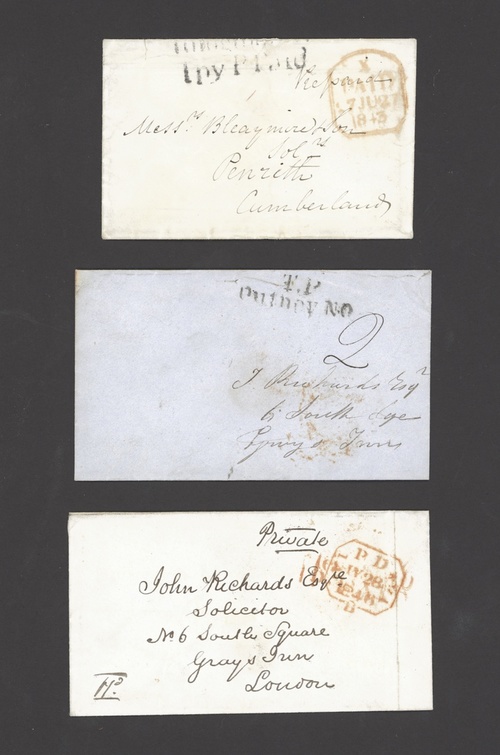 1py P Paid
Prepaid
X
PAID
7 JU 27
1843
Messrs. Bleaymire & Son
Solrs
Penrith
Cumberland
T.P
Putney NO
2
J. Richards Esqr
6 South Sqe
Grays Inn
Private
P D
JY 28
1846
B
John Richards Esqre
Solicitor
No 6 South Square
Grays Inn
London